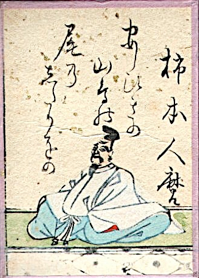 柿本人麿
あしひきの
山鳥の
尾乃
志たりをの